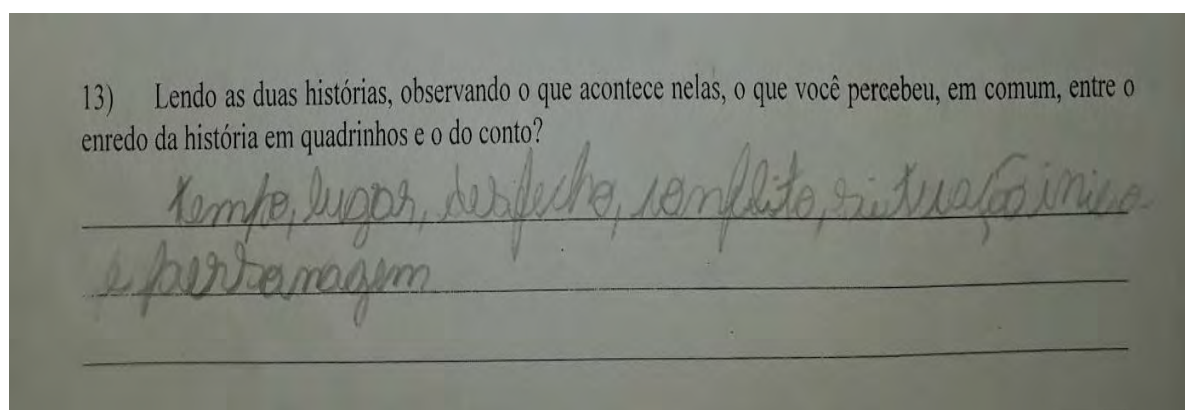 13) Lendo as duas histórias, observando o que acontece nelas, o que você percebeu, em comum, entre o
enredo da história em quadrinhos e o do conto?
tempo, lugar, desfecho, conflito, situação
e personagem